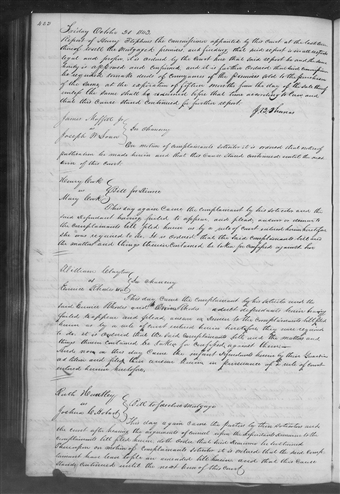 Friday October 20 1843
Report of Henry Stephens the commissioner appointed by this Court at the last term
thereof to sell the Mortgaged premises, and finding that said report is in all respects
legal and proper, it is ordered by the Court here that said report be and the same
hereby is approved and confirmed, and it is further ordered that said commissioner
be required to make deeds of Conveyance of the premises sold to the purchasers
of the same at the expiration of fifteen months from the day of the sale thereof
unless the same shall be redeemed before that time according to law and
that this Cause Stand Continued for further report.
James Moffitt Jr
vs In Chancery
Joseph
On motion of Complainants solicitor it is ordered that notice of
publication be made herein and that this Cause Stand continued until the next
term of this Court.
Henry
vs Bill for Divorce
Mary
This day again Came the Complainant by his solicitor and the
said defendant having failed to appear, and plead, answer or demur to
the Complainants bill filed herein as by a rule of Court entered herein heretofore
she was required to do. It is ordered that the said Complainants bill and
the matters and things therein Contained, be taken for confessed against her
William
vs In Chancery
This day Came the Complainant by his solicitor and the
said adult defendants herein having
failed to appear and plead, answer or demur to the Complainants bill filed
herein as by a rule of Court entered herein heretofore they were required
to do. it is ordered that the Complainants bill and the matters and
things therein contained be taken for Confessed against them
And now on this day Came the infant defendants herein by their Guardian
ad litem and filed their answer herein in pursuance of a rule of court
entered herein heretofore.
Ruth Huntley
vs Bill to foreclose Mortgage
Joshua C. Robert
This day again Came the parties by their solicitors and
the Court after hearing the arguments of counsel upon the defendants demurrer to the
complainants bill filed herein doth order that said demurrer be sustained
Thereupon on motion of Complainants solicitor it is ordered that the said Complainant
have leave to file an amended bill herein and that this Cause
Stand Continued until the next term of this Court.